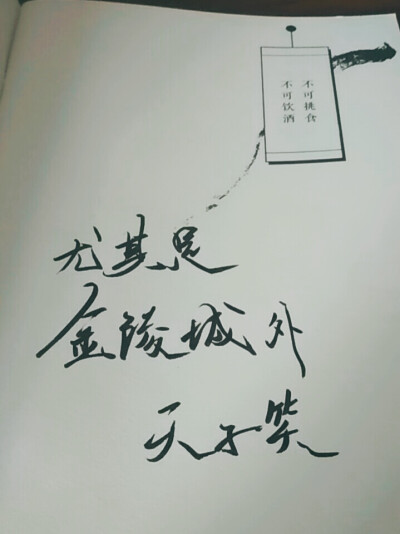 不可挑食
不可饮酒
尤其是
金陵城外
天子笑